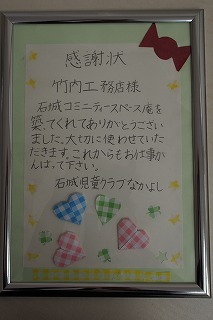 感謝状
竹内工務店様
石城コミニティースペース庵を
築てくれてありがとうござい
ました。大切に使わせていた
だきます。これからもお仕事か
んばって下さい。
石城児童クラブなかよし